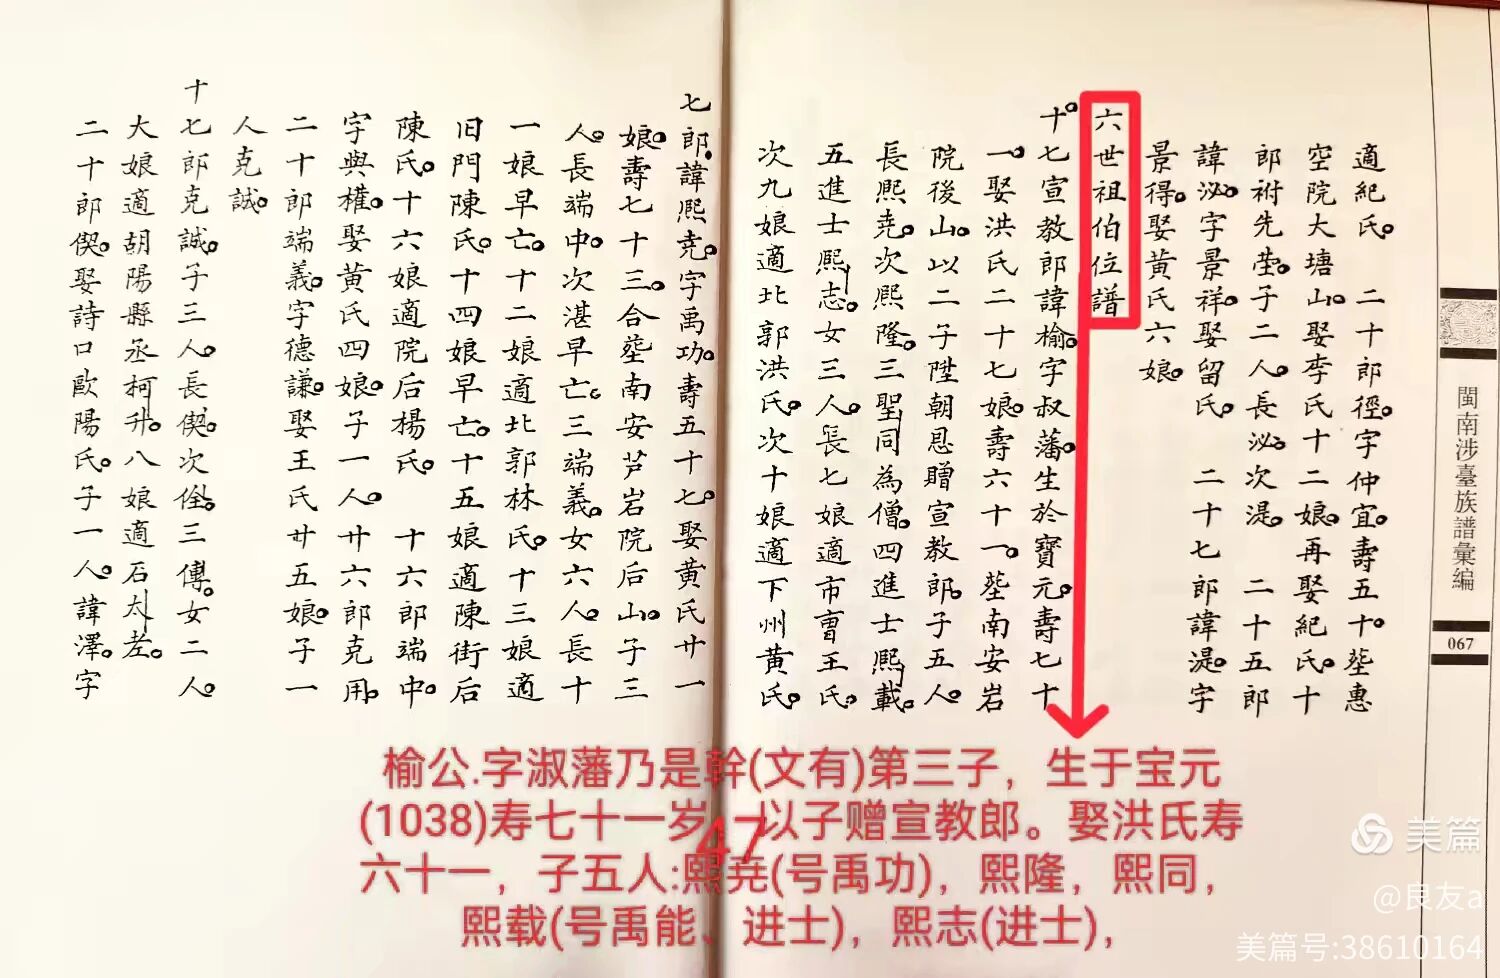 適紀氏。 二十郎徑。字仲宜。壽五十。塟惠
空院大塘山。娶李氏十二娘。再娶紀氏。十
郎祔先塋。子二人。長泌。次湜。 二十五郎
諱泌。字景祥。娶留氏。 二十七郎諱湜。字
景得。娶黄氏六娘。
六世祖伯位譜
十七宣教郎諱榆。字叔藩。生於寶元。壽七十
一。娶洪氏二十七娘。壽六十一。塟南安岩
院後山。以二子陞朝恩贈宣教郎。子五人。
長熙尭。次熙隆。三聖同為僧。四進士熙載。
五進士熙志。女三人。長七娘適市曹王氏。
次九娘適北郭洪氏。次十娘適下州黄氏。
七郎。諱熙尭。字禹功。壽五十七。娶黄氏廿一
娘。壽七十三。合塟南安芦岩院后山。子三
人。長端中。次湛早亡。三端義。女六人。長十
一娘早亡。十二娘適北郭林氏。十三娘適
旧門陳氏。十四娘早亡。十五娘適陳街后
陳氏。十六娘適院后楊氏。 十六郎端中。
字與權。娶黄氏四娘。子一人。廿六郎克用。
二十郎端義。字德謙。娶王氏廿五娘。子一
人克誠。
十七郎克誠。子三人。長偰。次佺。三傳。女二人。
大娘適胡陽縣丞柯升。八娘適石太差。
二十郎偰。娶詩口歐陽氏。子一人。諱澤。字
閩南涉臺族譜彙編
067
榆公.字淑藩乃是幹(文有)第三子，生于宝元
(1038)寿七十一岁，以子赠宣教郎。娶洪氏寿
47
六十一，子五人:熙尭(号禹功)，熙隆，熙同，
熙载(号禹能、进士)，熙志(进士)，
美篇
@良友a
美篇号:38610164